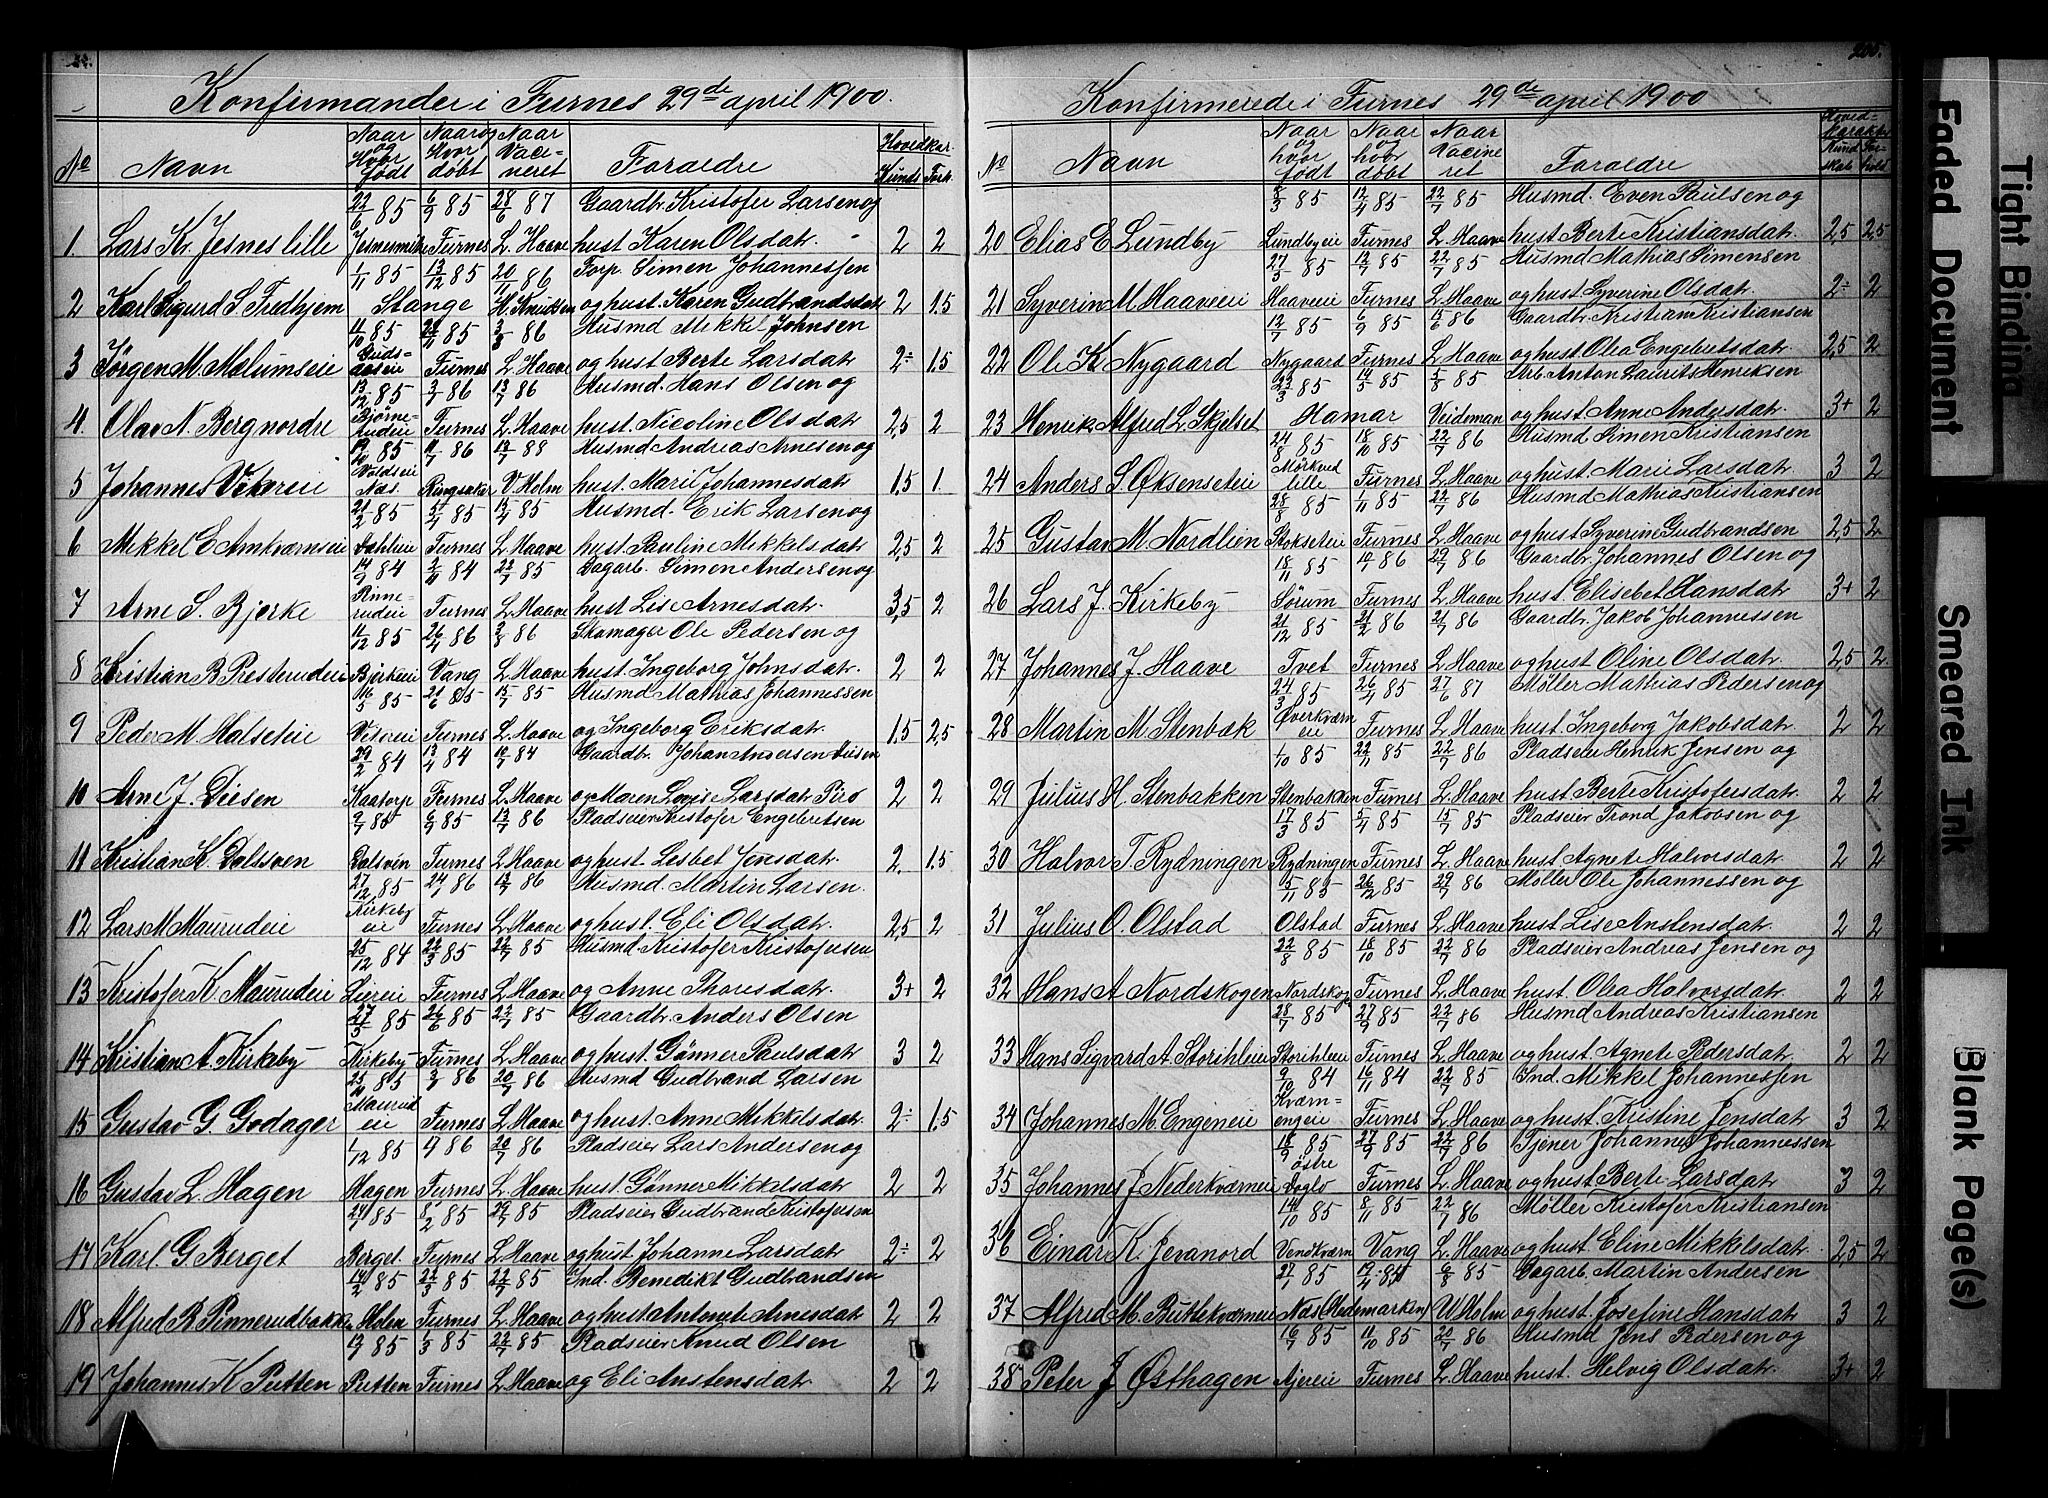 Konfirmander i Furnes 29de april 1900.
No Navn Naar og Hvor født Naar og Hvor døbt Naar Vaccineret Foraeldre Hovedkar. Kunds. Forh.
22/6 85 6/9 85 28/6 87 Gaardbr. Kristofer Larsen og
1. Lars Kr. Jesnes lille Furnes L. Haave hust. Karen Olsdatr. 2 2
1/11 85 13/12 85 20/11 86 Forp. Simen Johannessen
2 Karl Sigurd S. Fredhjem Stange H. Knutsen og hust. Karen Gudbrandsdatr 2 1.5
11/10 85 3/3 86 Husmd Mikkel Johnsen
3 Jørgen M. Mælumseie Furnes L. Haave og hust Berte Larsdatr 2÷ 1.5
13/12 85 3/7 86 13/7 86 Husmd. Hans Olsen og
4. Olav N. Berg nordre Furnes L. Haave hust. Nicoline Olsdatr 2,5 2
85 11/7 86 88 Husmd Andreas Arnesen og
5 Johannes Næs. Ringsaker V. Holm hust. Marie Johannesdatr 1,5 1.
21/2 85 5/4 85 85 Husmd. Erik Larsen og
6 Mikkel E Amkværnseie Dahleie Furnes L. Haave hust. Pauline Mikkelsdatr 2,5 2
14/9 84 84 22/7 85 Dagarb. Simen Andersen og
7 Arne S. Bjerke Furnes L. Haave hust Lise Arnesdatr. 3,5 2
11/12 85 26/4 86 86 Skomager Ole Pedersen og
8 Kristian B Presterudeie Bjerkeie Vang L. Haave hust. Ingeborg Johnsdatr. 2 2
16/5 85 21/6 85 15/7 85 Husmd Mathias Johannessen
9 Peder M. Halseteie Furnes L. Haave og Ingeborg Eriksdatr. 1,5 2,5
29/2 84 13/4 84 84 Gaardbr. Johan Andersen Diesen
10 Arne J. Diesen Kaatorp Furnes L. Haave og Maren Lovise Larsdatr 2 2
6/9 85 13/7 86 Pladseier Kristofer Engebretsen
11 Kristian K. Dalsven Dalsven Furnes L. Haave og hust. Lisbet Jensdatr. 2. 1.5
27/12 85 86 13/7 86 Husmd. Martin Larsen.
12 Lars M Maurudeie Kirkeby eie Furnes L. Haave og hust. Eli Olsdatr. 2,5 2
25/12 84 22/3 85 22/7 85 Husmd Kristofer Kristofersen
13 Kristofer K. Maurudeie Furnes L. Haave og Anne Thoresdatr. 3+ 2
27/5 85 26/6 85 22/7 85 Gaardbr. Anders Olsen
14 Kristian A. Kirkeby Kirkeby Furnes L. Haave og hust. Gønner Paulsdatr 3 2
85 86 20/7 86 Husmd Gudbrand Larsen
15 Gustav G. Godager Maurud eie Furnes L. Haave og hust. Anne Mikkelsdatr 2÷ 1.5
1/12 85 86 20/7 86 Pladseier Lars Andersen og
16 Gustav L. Hagen Hagen Furnes L. Haave hust. Gønner Mikkelsdatr 2 2
85 8/2 85 29/7 85 Pladseier Gudbrand Kristofersen
17 Karl. G Berget Berget. Furnes L. Haave og hust Johanne Larsdatr 2÷ 2
14/2 85 22/3 85 22/7 85 Ind. Benedikt Gudbrandsen
18 Alfred B Pinnerudbakke Holen Furnes L. Haave og hust. Antonette Arnesdatr 2 2
85 1/3 85 22/7 85 Pladseier Knud Olsen
19 Johannes K Putten Putten Furnes L. Haave og Eli Anstensdatr 2 2
200.
Konfirmerede i Furnes 29de april 1900
No Navn Naar og hvor født Naar og hvor døbt Naar Vacineret Foraeldre Hoved-Karakter Kundskab Forhold
8/3 85 12/4 85 22/7 85 Husmd. Even Paulsen og
20 Elias E Lundby Lundbyeie Furnes L. Haave hust Berte Kristiansdatr. 2,5 2,5
27/5 85 12/7 85 22/7 85 Husmd Mathias Simensen
21 Syverin M. Haaveeie Haaveeie Furnes L. Haave og hust Syverine Olsdatr. 2÷ 2
12/7 85 6/9 85 15/6 86 Gaardbr. Kristian Kristiansen
22 Ole K Nygaard Nygaard Furnes L. Haave og hust. Olea Engebretsdatr. 2,5 2
23/3 85 14/5 85 5/8 85 Arb. Anton Laurits Henriksen
23 Henrik Alfred L Skjelset Hamar Veideman og hust. Anne Andersdatr. 3+ 2
24/8 85 18/10 85 22/7 86 Husmd Simen Kristiansen
24 Anders S. Øksenseteie Mørkved lille Furnes L. Haave og hust. Marie Larsdatr. 3 2
28/8 85 1/11 85 22/7 86 Husmd Mathias Kristiansen
25 Gustav M Nordlien Stokseteie Furnes L. Haave og hust Syverine Gudbrandsen 2,5 2
18/11 85 86 29/7 86 Gaardbr. Johannes Olsen og
26 Lars J. Kirkeby Sørum Furnes L. Haave hust. Elisebet Hansdatr 3+ 2
21/12 85 21/2 86 21/7 86 Gaardbr. Jakob Johannessen
27 Johannes J. Haave Tvet Furnes L. Haave og hust Oline Olsdatr. 2,5 2.
24/3 85 85 27/6 87 Møller Mathias Pedersen og
28 Martin M Stenbæk Øverkværn eie Furnes L. Haave hust. Ingeborg Jakobsdatr 2 2
1/10 85 22/11 85 22/7 86 Pladseier Henrik Jensen og
29 Julius H. Stenbakken Stenbakken Furnes L. Haave hust. Berte Kristofersdatr. 2 2
17/3 85 5/4 85 15/7 85 Pladseier Trond Jakobsen og
30 Halvor T. Rydningen Rydningen Furnes L. Haave hust. Agnete Halvorsdatr. 2 2
5/11 85 26/12 85 29/7 86 Møller Ole Johannessen og
31 Julius O. Olstad Olstad Furnes L. Haave hust. Lise Anstensdatr. 2 2
22/8 85 18/10 85 22/7 86 Pladseier Andreas Jensen og
32 Hans A Nordskogen Nordskogen Furnes L. Haave hust. Olea Halvorsdatr. 2 2
28/7 85 27/9 85 22/7 86 Husmd Andreas Kristiansen
33 Hans Sigvard A. Storihleie Storihleie Furnes L. Haave og hust. Agnete Pedersdatr. 2 2
9/10 84 16/11 84 22/7 85 Ind. Mikkel Johannessen
34 Johannes M. Engeneie Kværn-engeie Furnes L. Haave og hust Kristine Jensdatr 3 2
18/9 85 27/9 85 22/7 86 Tjener Johannes Johannessen
35 Johannes J Nederkværneie østre Doglo Furnes L. Haave og hust Berte Larsdatr 3 2
14/10 85 8/11 85 22/7 86 Møller Kristofer Kristiansen
36 Einar K. Jevanord Vendkværn Vang L. Haave og hust. Eline Mikkelsdatr 2,5 2
27/1 85 85 6/8 85 Dagarb. Martin Andersen
37 Alfred M. Buthekværneie Næs (Hedemarken) W Holm og hust. Josefine Hansdatr 3 2
16/7 85 11/10 85 20/7 86 Husmd Jens Pedersen og
38 Peter J Østhagen Ajereie Furnes L. Haave hust. Helvig Olsdatr. 3+ 2
Faded Document
Tight Binding
Smeared Ink
Blank Page(s)